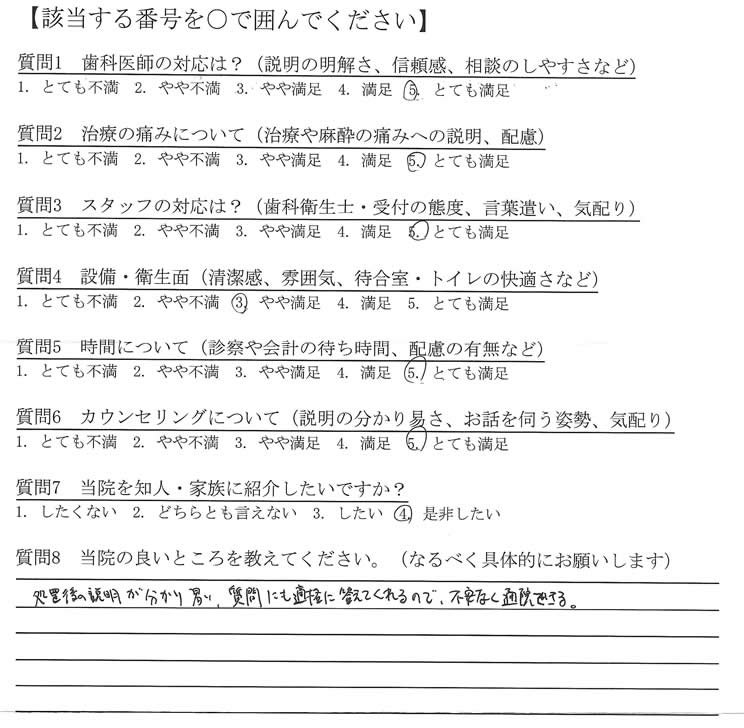 【該当する番号を〇で囲んでください】
質問1 歯科医師の対応は?(説明の明解さ、信頼感、相談のしやすさなど)
1. とても不満 2. やや不満 3. やや満足 4. 満足 5. とても満足
質問2 治療の痛みについて(治療や麻酔の痛みへの説明、配慮)
1. とても不満 2. やや不満 3. やや満足 4. 満足 5. とても満足
質問3 スタッフの対応は?(歯科衛生士・受付の態度、言葉遣い、気配り)
1. とても不満 2. やや不満 3. やや満足 4. 満足 5. とても満足
質問4 設備・衛生面(清潔感、雰囲気、待合室・トイレの快適さなど)
1. とても不満 2. やや不満 3. やや満足 4. 満足 5. とても満足
質問5 時間について(診察や会計の待ち時間、配慮の有無など)
1. とても不満 2. やや不満 3. やや満足 4. 満足 5. とても満足
質問6 カウンセリングについて(説明の分かり易さ、お話を伺う姿勢、気配り)
1. とても不満 2. やや不満 3. やや満足 4. 満足 5. とても満足
質問7 当院を知人・家族に紹介したいですか?
1. したくない 2. どちらとも言えない 3. したい 4. 是非したい
質問8 当院の良いところを教えてください。(なるべく具体的にお願いします)
処置後の説明が分かり易い、質問にも適確に答えてくれるので、不安なく通院できる。